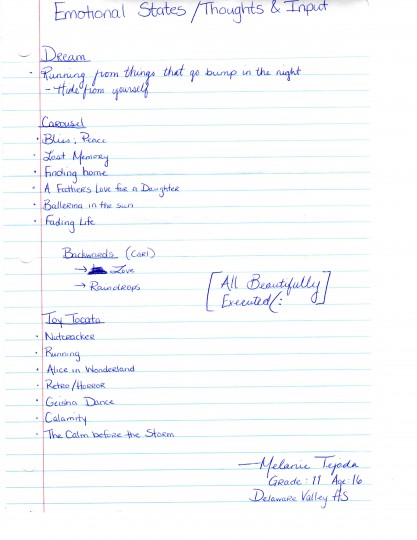 Emotional States/Thoughts & Input
Dream
• Running from things that go bump in the night
- Hide from yourself
Carousel
• Bliss, Peace
• Lost Memory
• Finding home
• A Father's Love for a Daughter
• Ballerina in the sun
• Fading Life
Backwards (Cari)
→ Love
→ Raindrops
[All Beautifully
Executed (:]
Toy Tocata
• Nutcracker
• Running
• Alice in Wonderland
• Retro/Horror
• Geisha Dance
• Calamity
• The Calm before the Storm
—Melanie Tejada
Grade: 11 Age: 16
Delaware Valley HS